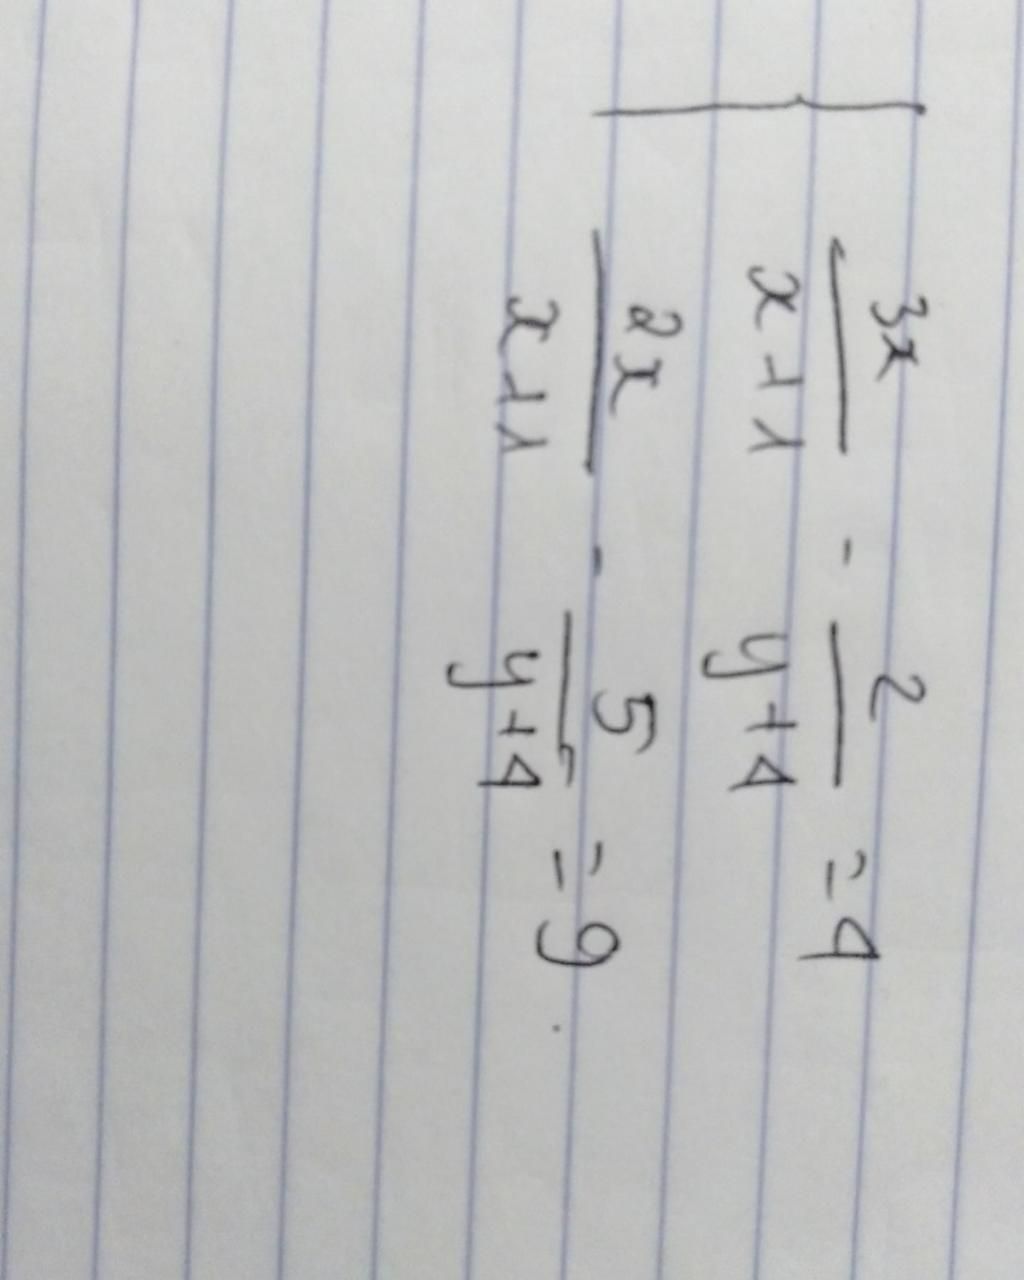 { 3x/(x+1) - 2/(y+4) = 4
2x/(x+1) - 5/(y+4) = 9